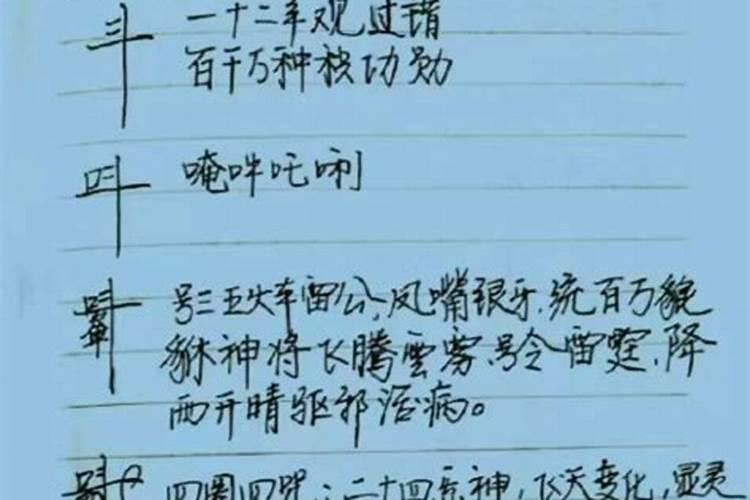 一十二年观过错
百千万种积功勋
唵吽吒唎
号三五火车雷公、凤嘴银牙、统百万貔
貅神将飞腾雲雾、号令雷霆、降
雨开晴驱邪治病。
四圈四咒：二十四炁神，飞天变化，显灵